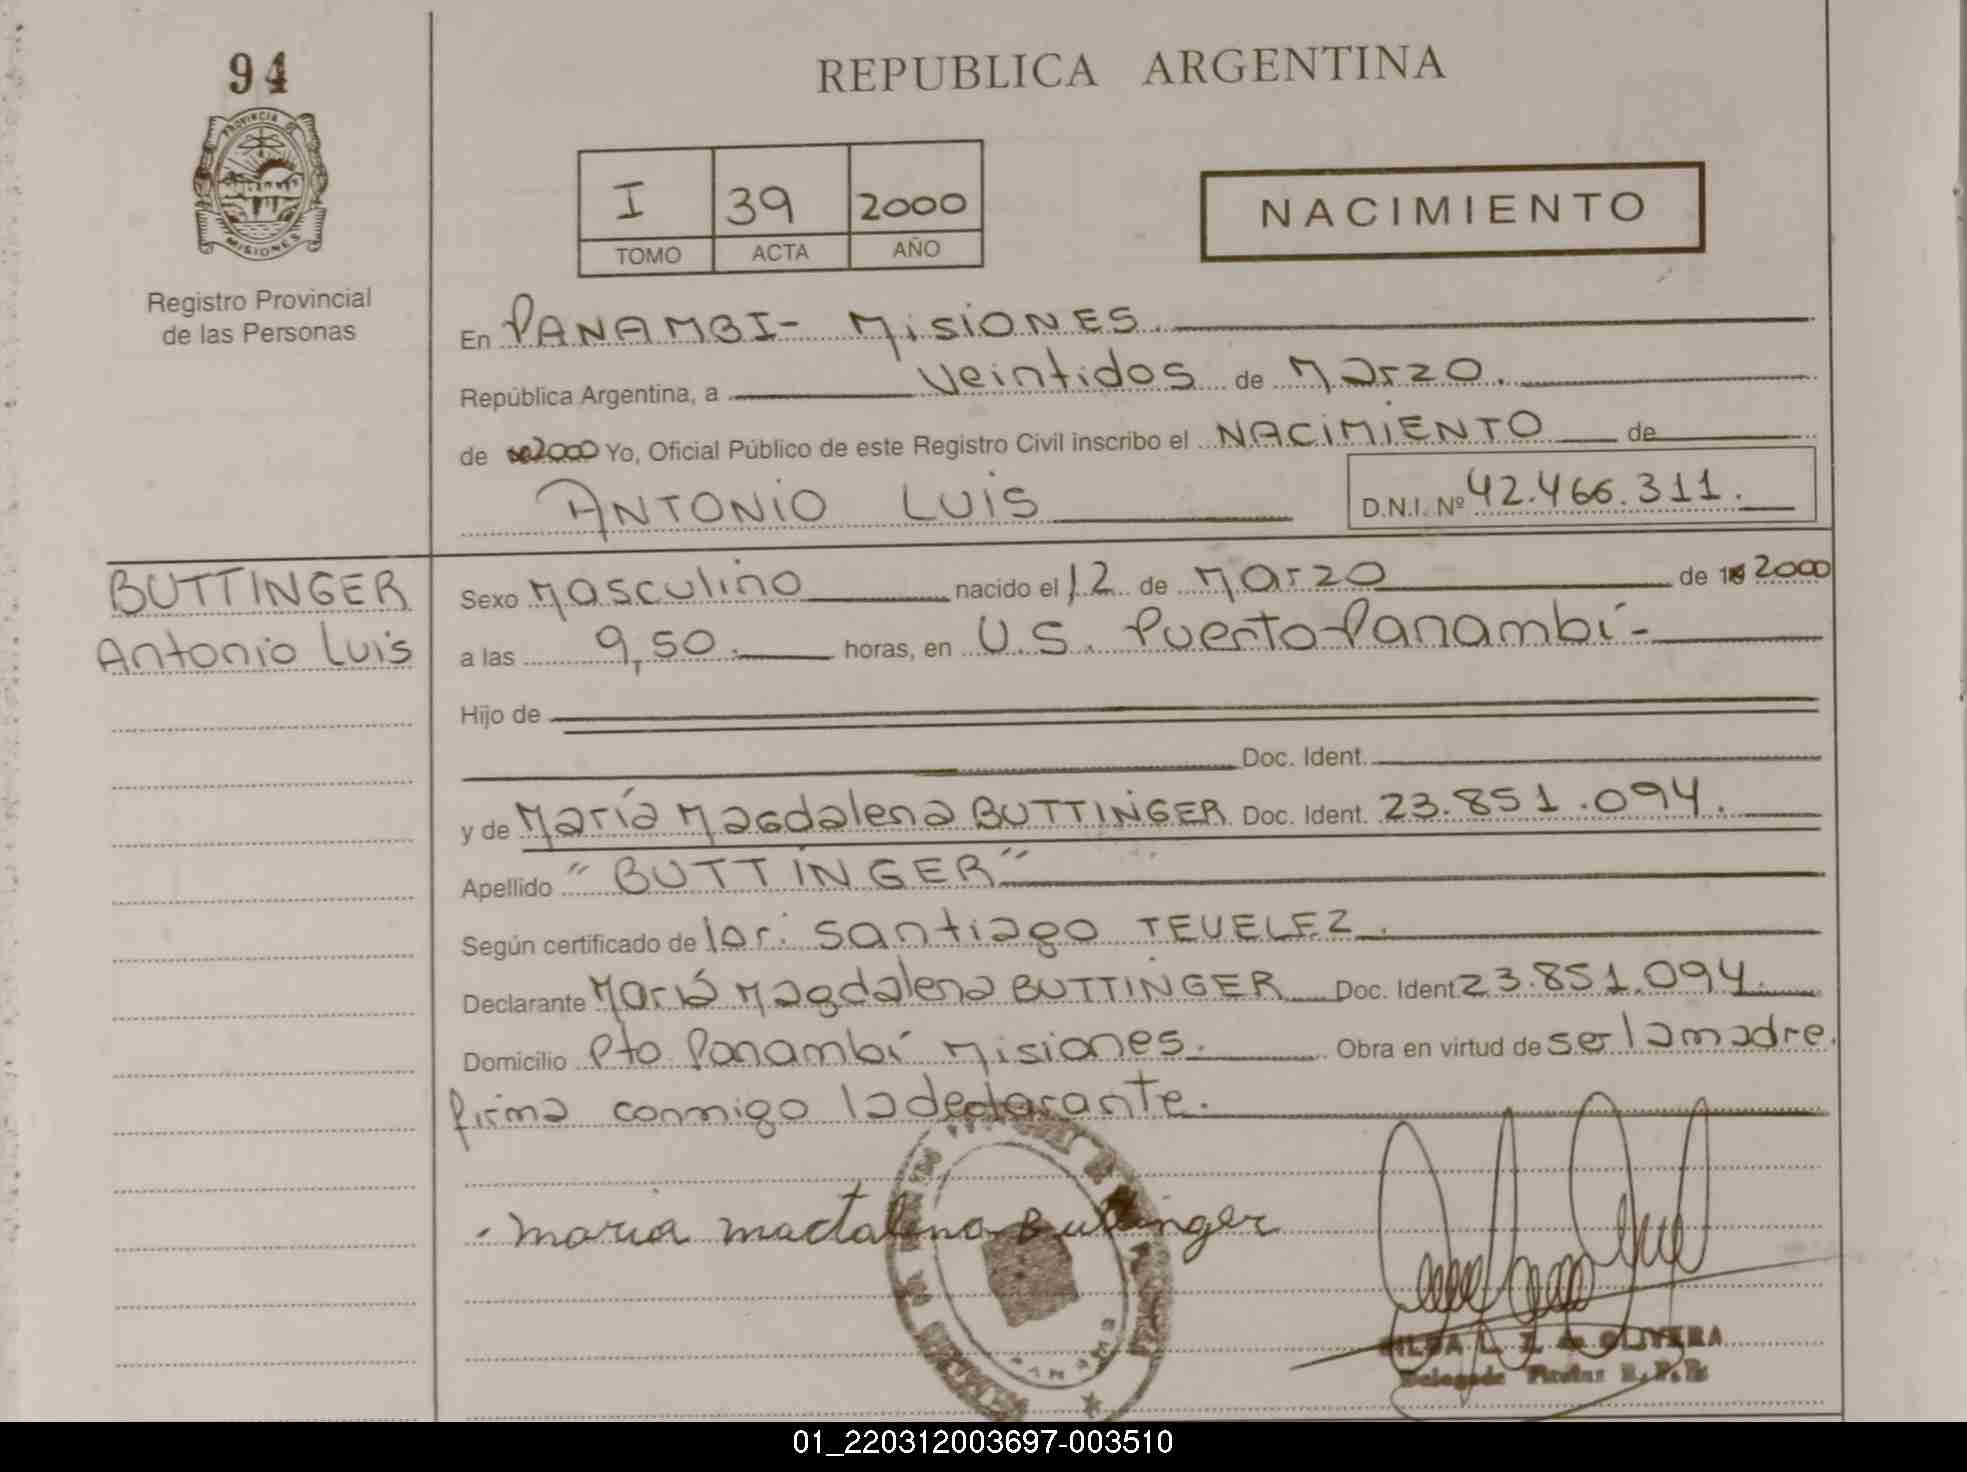 94
REPUBLICA ARGENTINA
PROVINCIA DE
MISIONES
Registro Provincial
de las Personas
I 39 2000
TOMO ACTA AÑO
NACIMIENTO
En PANAMBI- MISIONES.
República Argentina, a veintidos de Marzo.
de 2000 Yo, Oficial Público de este Registro Civil inscribo el NACIMIENTO de
ANTONIO LUIS D.N.I. Nº 42.466.311.
BUTTINGER
Antonio Luis
Sexo Masculino nacido el 12 de Marzo de 2000
a las 9,50. horas, en U.S. Puerto Panambí-
Hijo de
Doc. Ident.
y de María Magdalena BUTTINGER Doc. Ident. 23.851.094.
Apellido "BUTTINGER"
Según certificado de Santiago TEVELEZ.
Declarante María Magdalena BUTTINGER Doc. Ident. 23.851.094.
Domicilio Pto Panambí Misiones. Obra en virtud de ser la madre.
firma conmigo la declarante.
maria mactalena Buttinger
L. Z. de OLIVERA
01_220312003697-003510